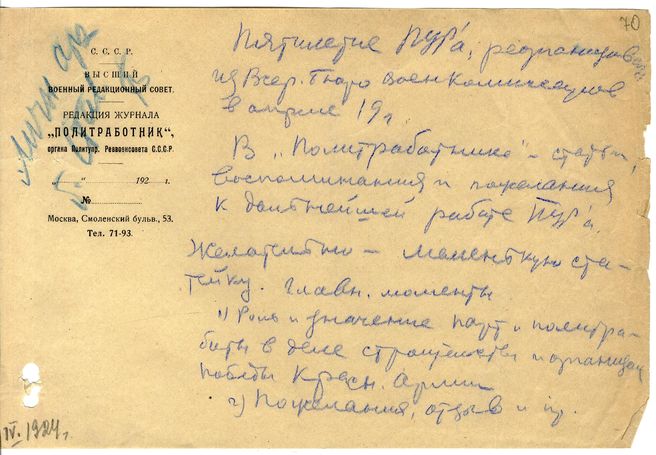 70
С. С. С. Р.
ВЫСШИЙ
ВОЕННЫЙ РЕДАКЦИОННЫЙ СОВЕТ.
РЕДАКЦИЯ ЖУРНАЛА
„ПОЛИТРАБОТНИК“,
органа Политупр. Реввоенсовета С.С.С.Р.
„ “ 192 г.
№
Москва, Смоленский бульв., 53.
Тел. 71-93.
Пятилетие ПУР'а,
из Всер. Бюро Военкомиссаров
в апреле 19 г.
В „Политработнике“ – статьи,
воспоминания и пожелания
к дальнейшей работе ПУР'а.
Желательно – маленькую ста-
тейку. Главн. моменты
1) Роль и значение парт и политра-
боты в деле строительства и организации
победы Красн. Армии
2) Пожелания, отзыв и пр.
IV. 1924 г.